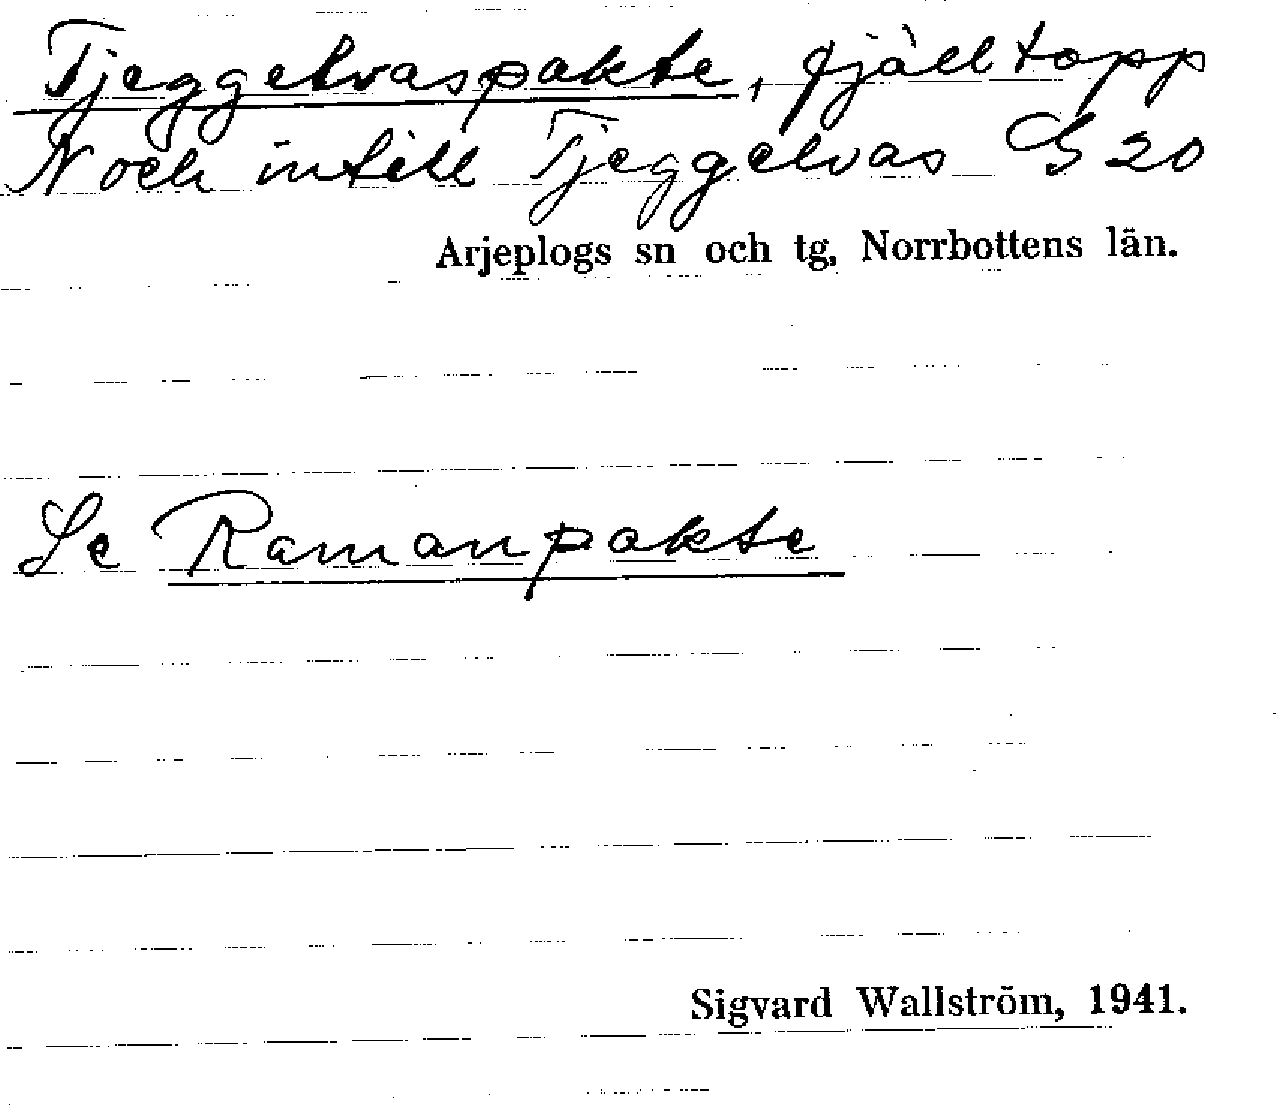 Tjeggelvaspakte, fjälltopp
N och intill Tjeggelvas G 20
Arjeplogs sn och tg, Norrbottens län.
Se Ramanpakte
Sigvard Wallström, 1941.